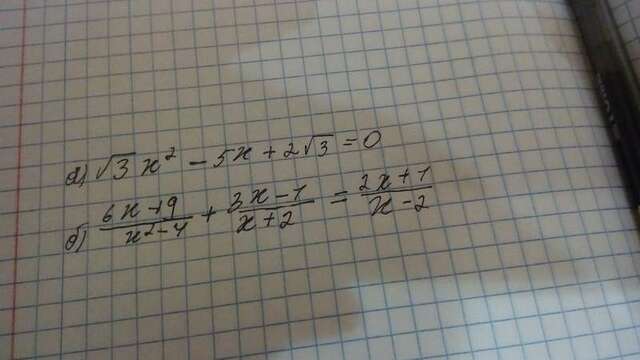 а) √3 x² - 5x + 2√3 = 0
б) (6x+9)/(x²-4) + (3x-1)/(x+2) = (2x+1)/(x-2)